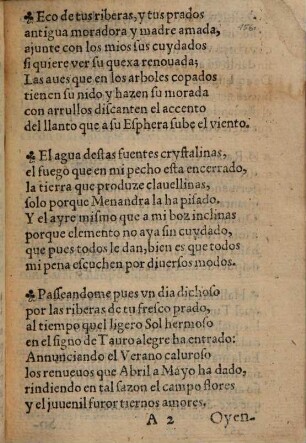 ☘ Eco de tus riberas, y tus prados
antigua moradora y madre amada,
ajunte con los mios sus cuydados
si quiere ver su quexa renouada;
Las aues que en los arboles copados
tienen su nido y hazen su morada
con arrullos discanten el accento
del llanto que a su Esphera sube el viento.
☘ El agua destas fuentes crystalinas,
el fuego que en mi pecho esta encerrado,
la tierra que produze clauellinas,
solo porque Menandra la ha pisado.
Y el ayre mismo que a mi boz inclinas
porque elemento no aya sin cuydado,
que pues todos le dan, bien es que todos
mi pena escuchen por diuersos modos.
☘ Passeandome pues vn dia dichoso
por las riberas de tu fresco prado,
al tiempo quel ligero Sol hermoso
en el signo de Tauro alegre ha entrado:
Annunciando el Verano caluroso
los renueuos que Abril a Mayo ha dado,
rindiendo en tal sazon el campo flores
y el juuenil furor tiernos amores.
A 2 Oyen-